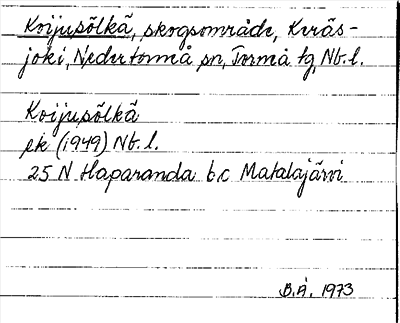 Koijusölkä, skogsområde, Keräs-
joki, Nedertorneå sn, Torneå tg, Nb. l.
Koijusölkä
ek (1949) Nb. l.
25 N Haparanda b c Matalajärvi
B.Å. 1973